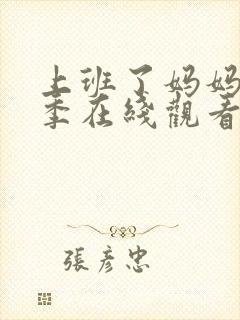 上班了妈妈
季在綫觀看
張彥忠